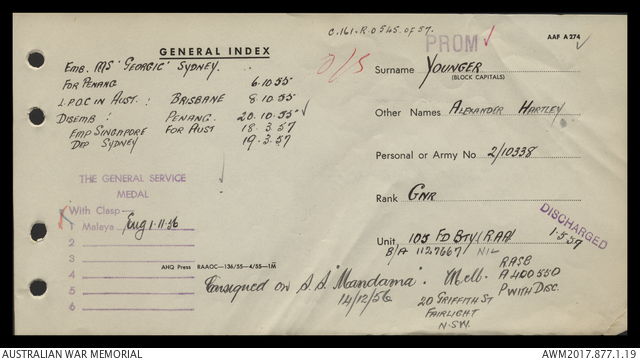 C.161.R.0545.of 57.
GENERAL INDEX
PROM
AAF A 274
EMB. MS "GEORGIC" SYDNEY.
FOR PENANG 6.10.55
L.P.O.C IN AUST.: BRISBANE 8.10.55
DISEMB: PENANG. 20.10.55
EMP SINGAPORE FOR AUST 18.3.57
DEP SYDNEY 19.3.57
O/S
Surname YOUNGER
(BLOCK CAPITALS)
Other Names ALEXANDER HARTLEY
Personal or Army No 2/10338
Rank GNR
Unit 105 FD BTY (RAA)
B/A 1127667 NIL
DISCHARGED
1.5.59
THE GENERAL SERVICE
MEDAL
With Clasp
1 Malaya Eng 1.11.56
2
3
4
5
6
AHQ Press RAAOC—136/55—4/55—1M
Consigned on S.S. "Mandama". Melb.
14/12/56
RASB
A400550
P WITH DISC.
20 GRIFFITH ST
FAIRLIGHT
N.S.W.
AUSTRALIAN WAR MEMORIAL
AWM2017.877.1.19